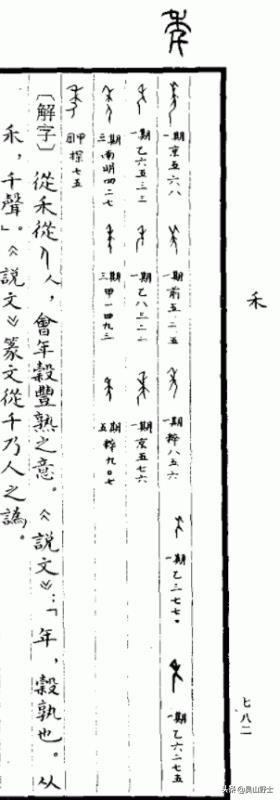 禾
七八二
一期 京五六八
一期 前五·二·五
一期 粹八五六
一期
一期 乙六二七五
一期 乙六五三三
一期
一期 京五七六
三期 南明四二七
三期 甲一四九三
五期 粹九〇七
周甲 探七五
〔解字〕從禾從人，會年穀豐熟之意。《説文》：「年，穀孰也。从
禾，千聲。」《説文》篆文從千乃人之譌。
头条 @奥山野士